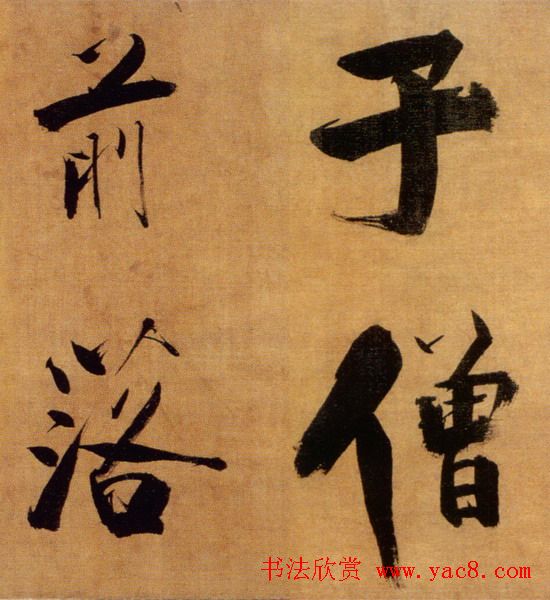 子僧
前落
书法欣赏 www.yac8.com